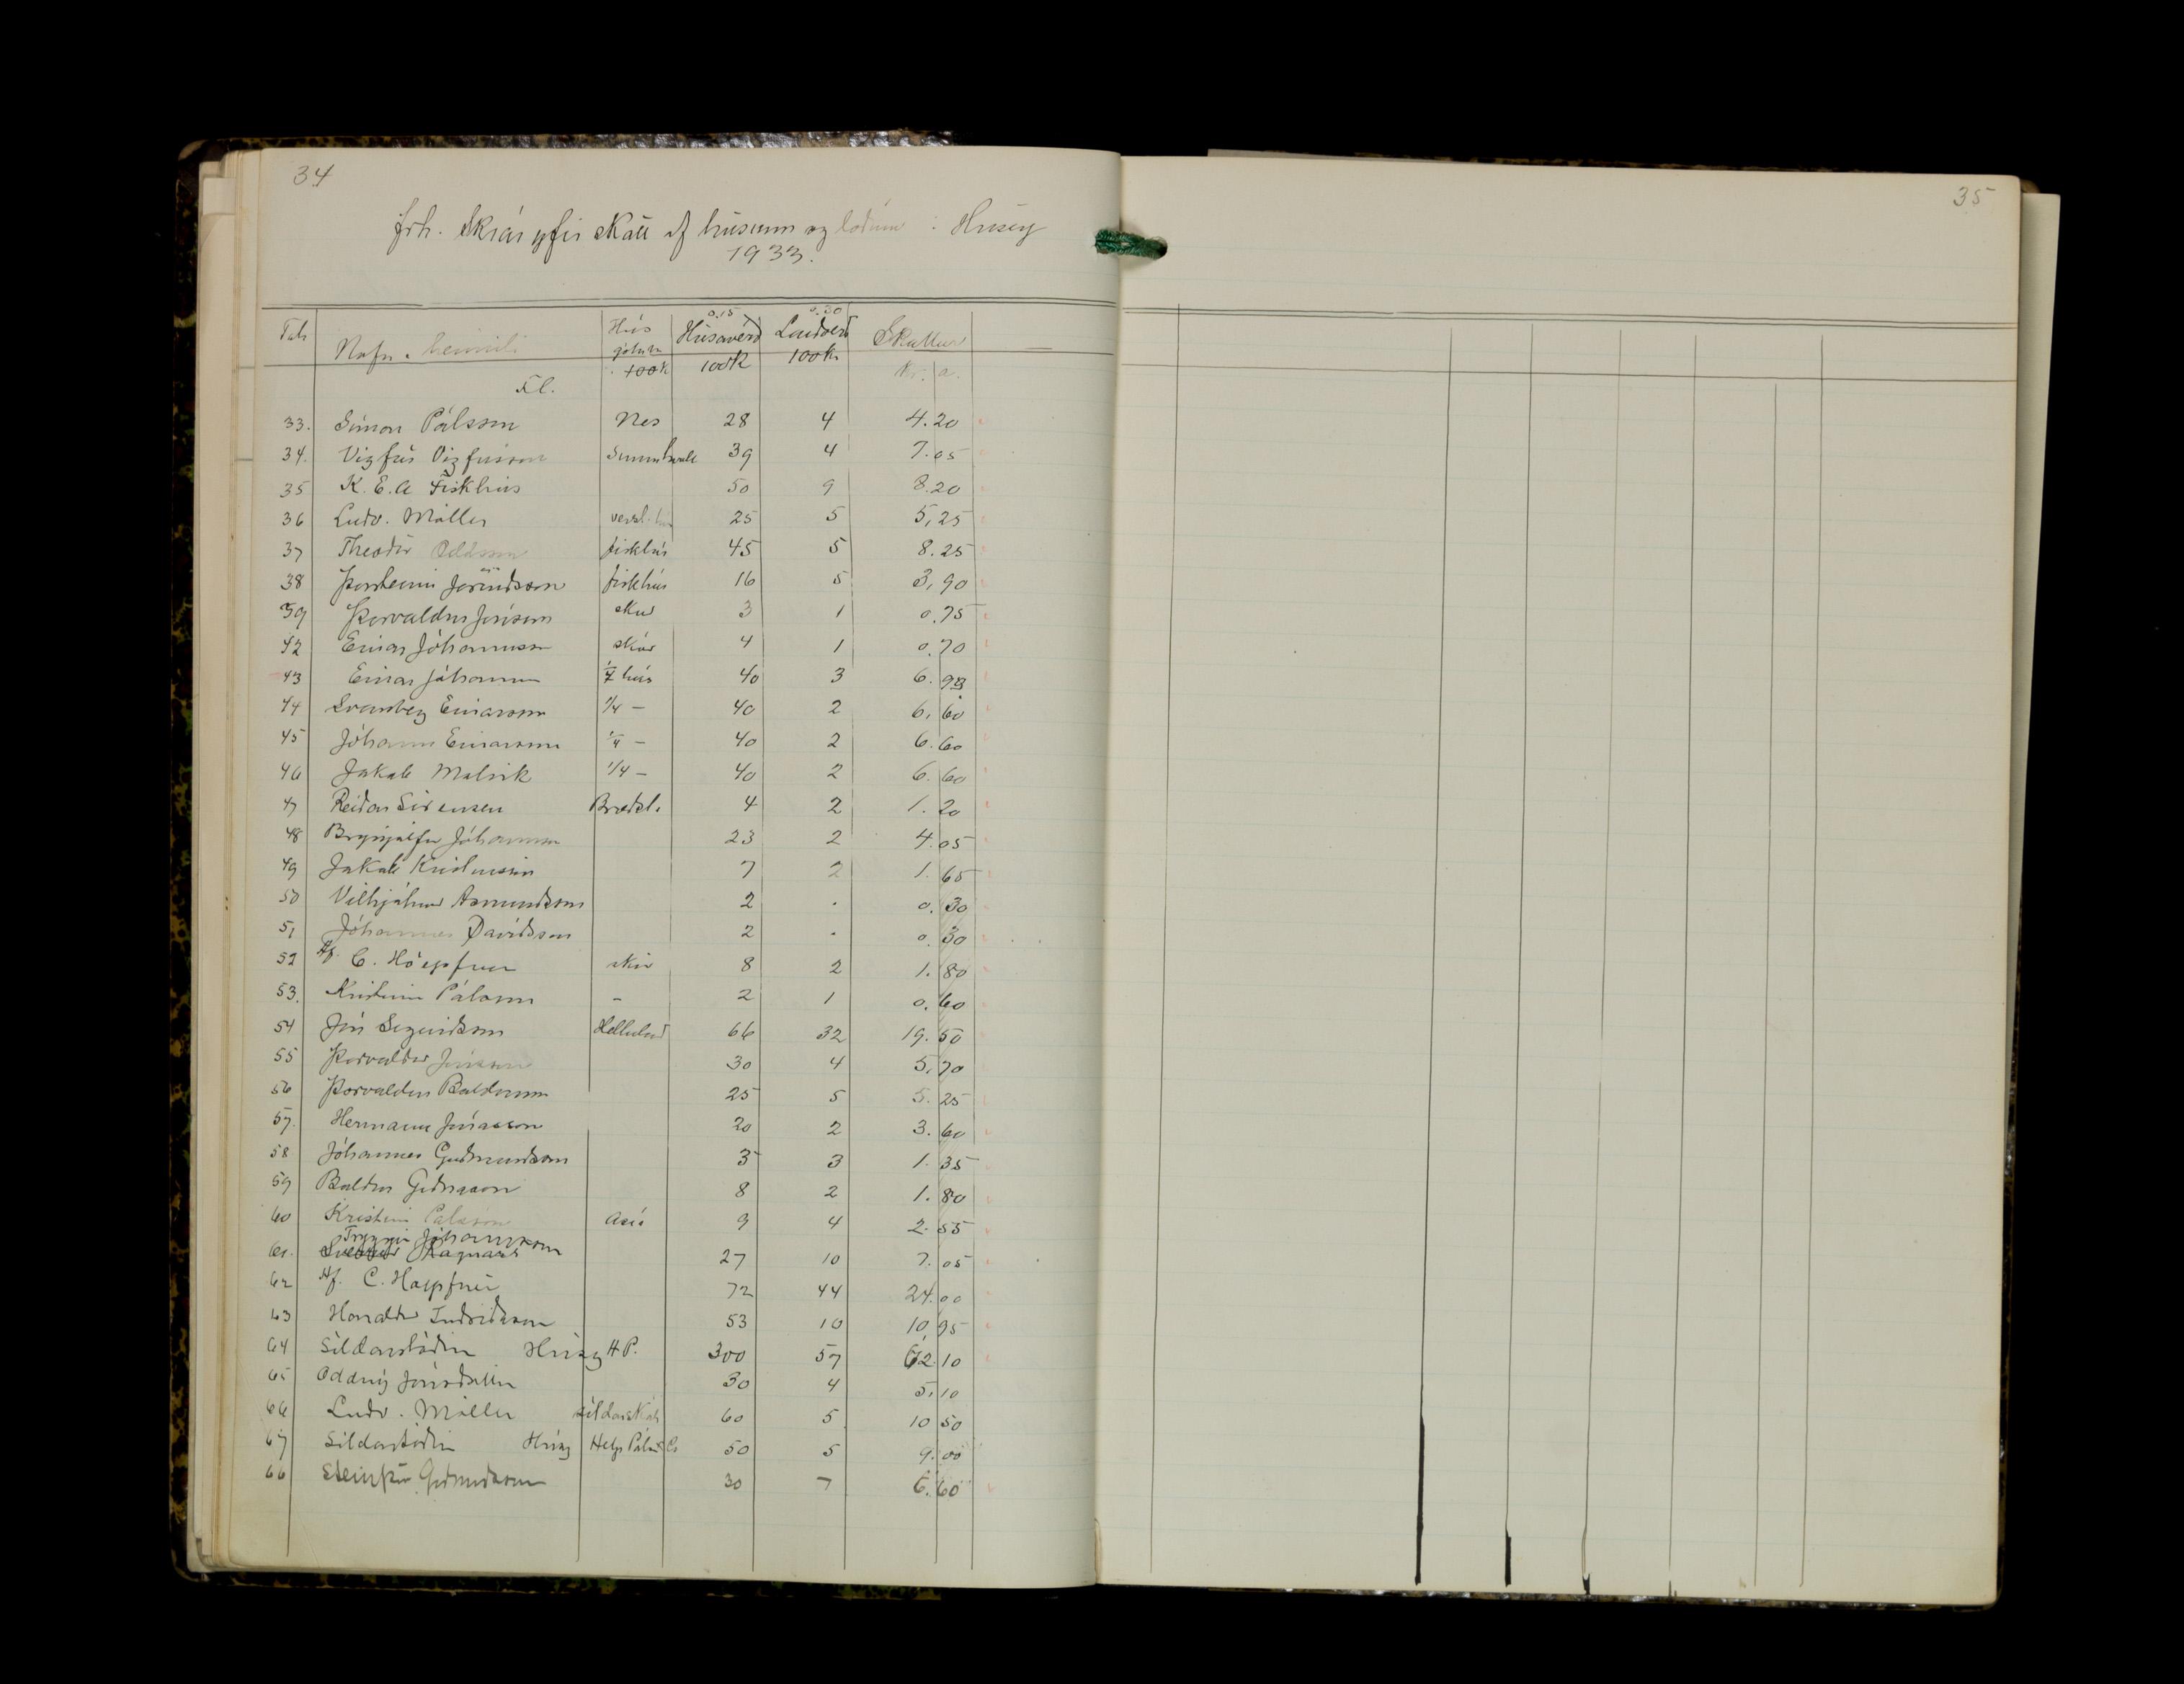 34
35
frh. Skrár yfir skatt af húsum og lóðum í Hrísey
1933.
0.15 0.30
Tals Nafn. heimili Hús götuhús Húsaverð Landverð Skattur
100k 100k 100k kr. a.
Fl.
33. Símon Pálsson Nes 28 4 4.20
34. Vigfús Vigfússon Sunnuhvoli 39 4 7.05
35 K.E.A Fiskhús 50 9 8.20
36 Ludv. Möller verzl. 25 5 5,25
37 Theodór Oddsson fiskhús 45 5 8.25
38 Þorsteinn Jörundsson fiskhús 16 5 3,90
39 Þorvaldur Jónsson skúr 3 1 0.75
42 Einar Jóhannsson skúr 4 1 0.70
43 Einar Jóhannsson ¼ hús 40 3 6.90
44 Svanberg Einarsson 1/4 – 40 2 6,60
45 Jóhann Einarsson ¼ – 40 2 6.60
46 Jakob Malvik 1/4 – 40 2 6.60
47 Reidar Sörensen Brædsl. 4 2 1.20
48 Brynjólfur Jóhannsson 23 2 4.05
49 Jakob Kristinsson 7 2 1.65
50 Vilhjálmur Asmundsson 2 . 0.30
51 Jóhannes Davíðsson 2 . 0.30
52 Hf. C. Höepfner skúr 8 2 1.80
53. Kristinn Pálsson – 2 1 0.60
54 Jón Sigurðsson Helluland 66 32 19.50
55 Þorvaldur Jónsson 30 4 5,70
56 Þorvaldur Baldvinsson 25 5 5.25
57. Hermann Jónasson 20 2 3.60
58 Jóhannes Guðmundsson 3 3 1.35
59 Baldur Guðnason 8 2 1.80
60 Kristinn Pálsson Asía 9 4 2.55
Tryggvi Jóhannsson
61. Ragnars 27 10 7.05
62 Hf. C. Höepfner 72 44 24.00
63 Haraldur Indriðason 53 10 10,95
64 Síldarstöðin Hrísey H P. 300 57 62.10
65 Oddný Jónsdóttir 30 4 5,10
66 Ludv. Möller síldarskáli 60 5 10 50
67 Síldarstöðin Hrísey Helgi Páls & Co 50 5 9.00
66 Steinþór Guðmundsson 30 7 6.60